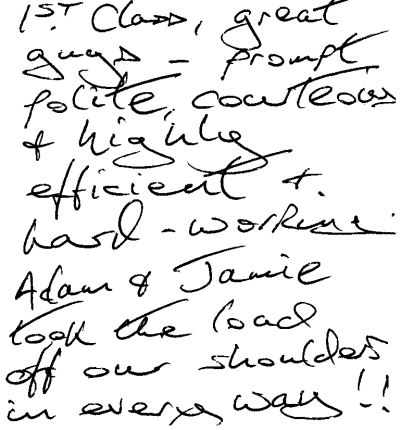 1ST Class, great
guys - prompt
polite, courteous
& highly
efficient &
hard-working.
Adam & Jamie
took the load
off our shoulders
in every way!!